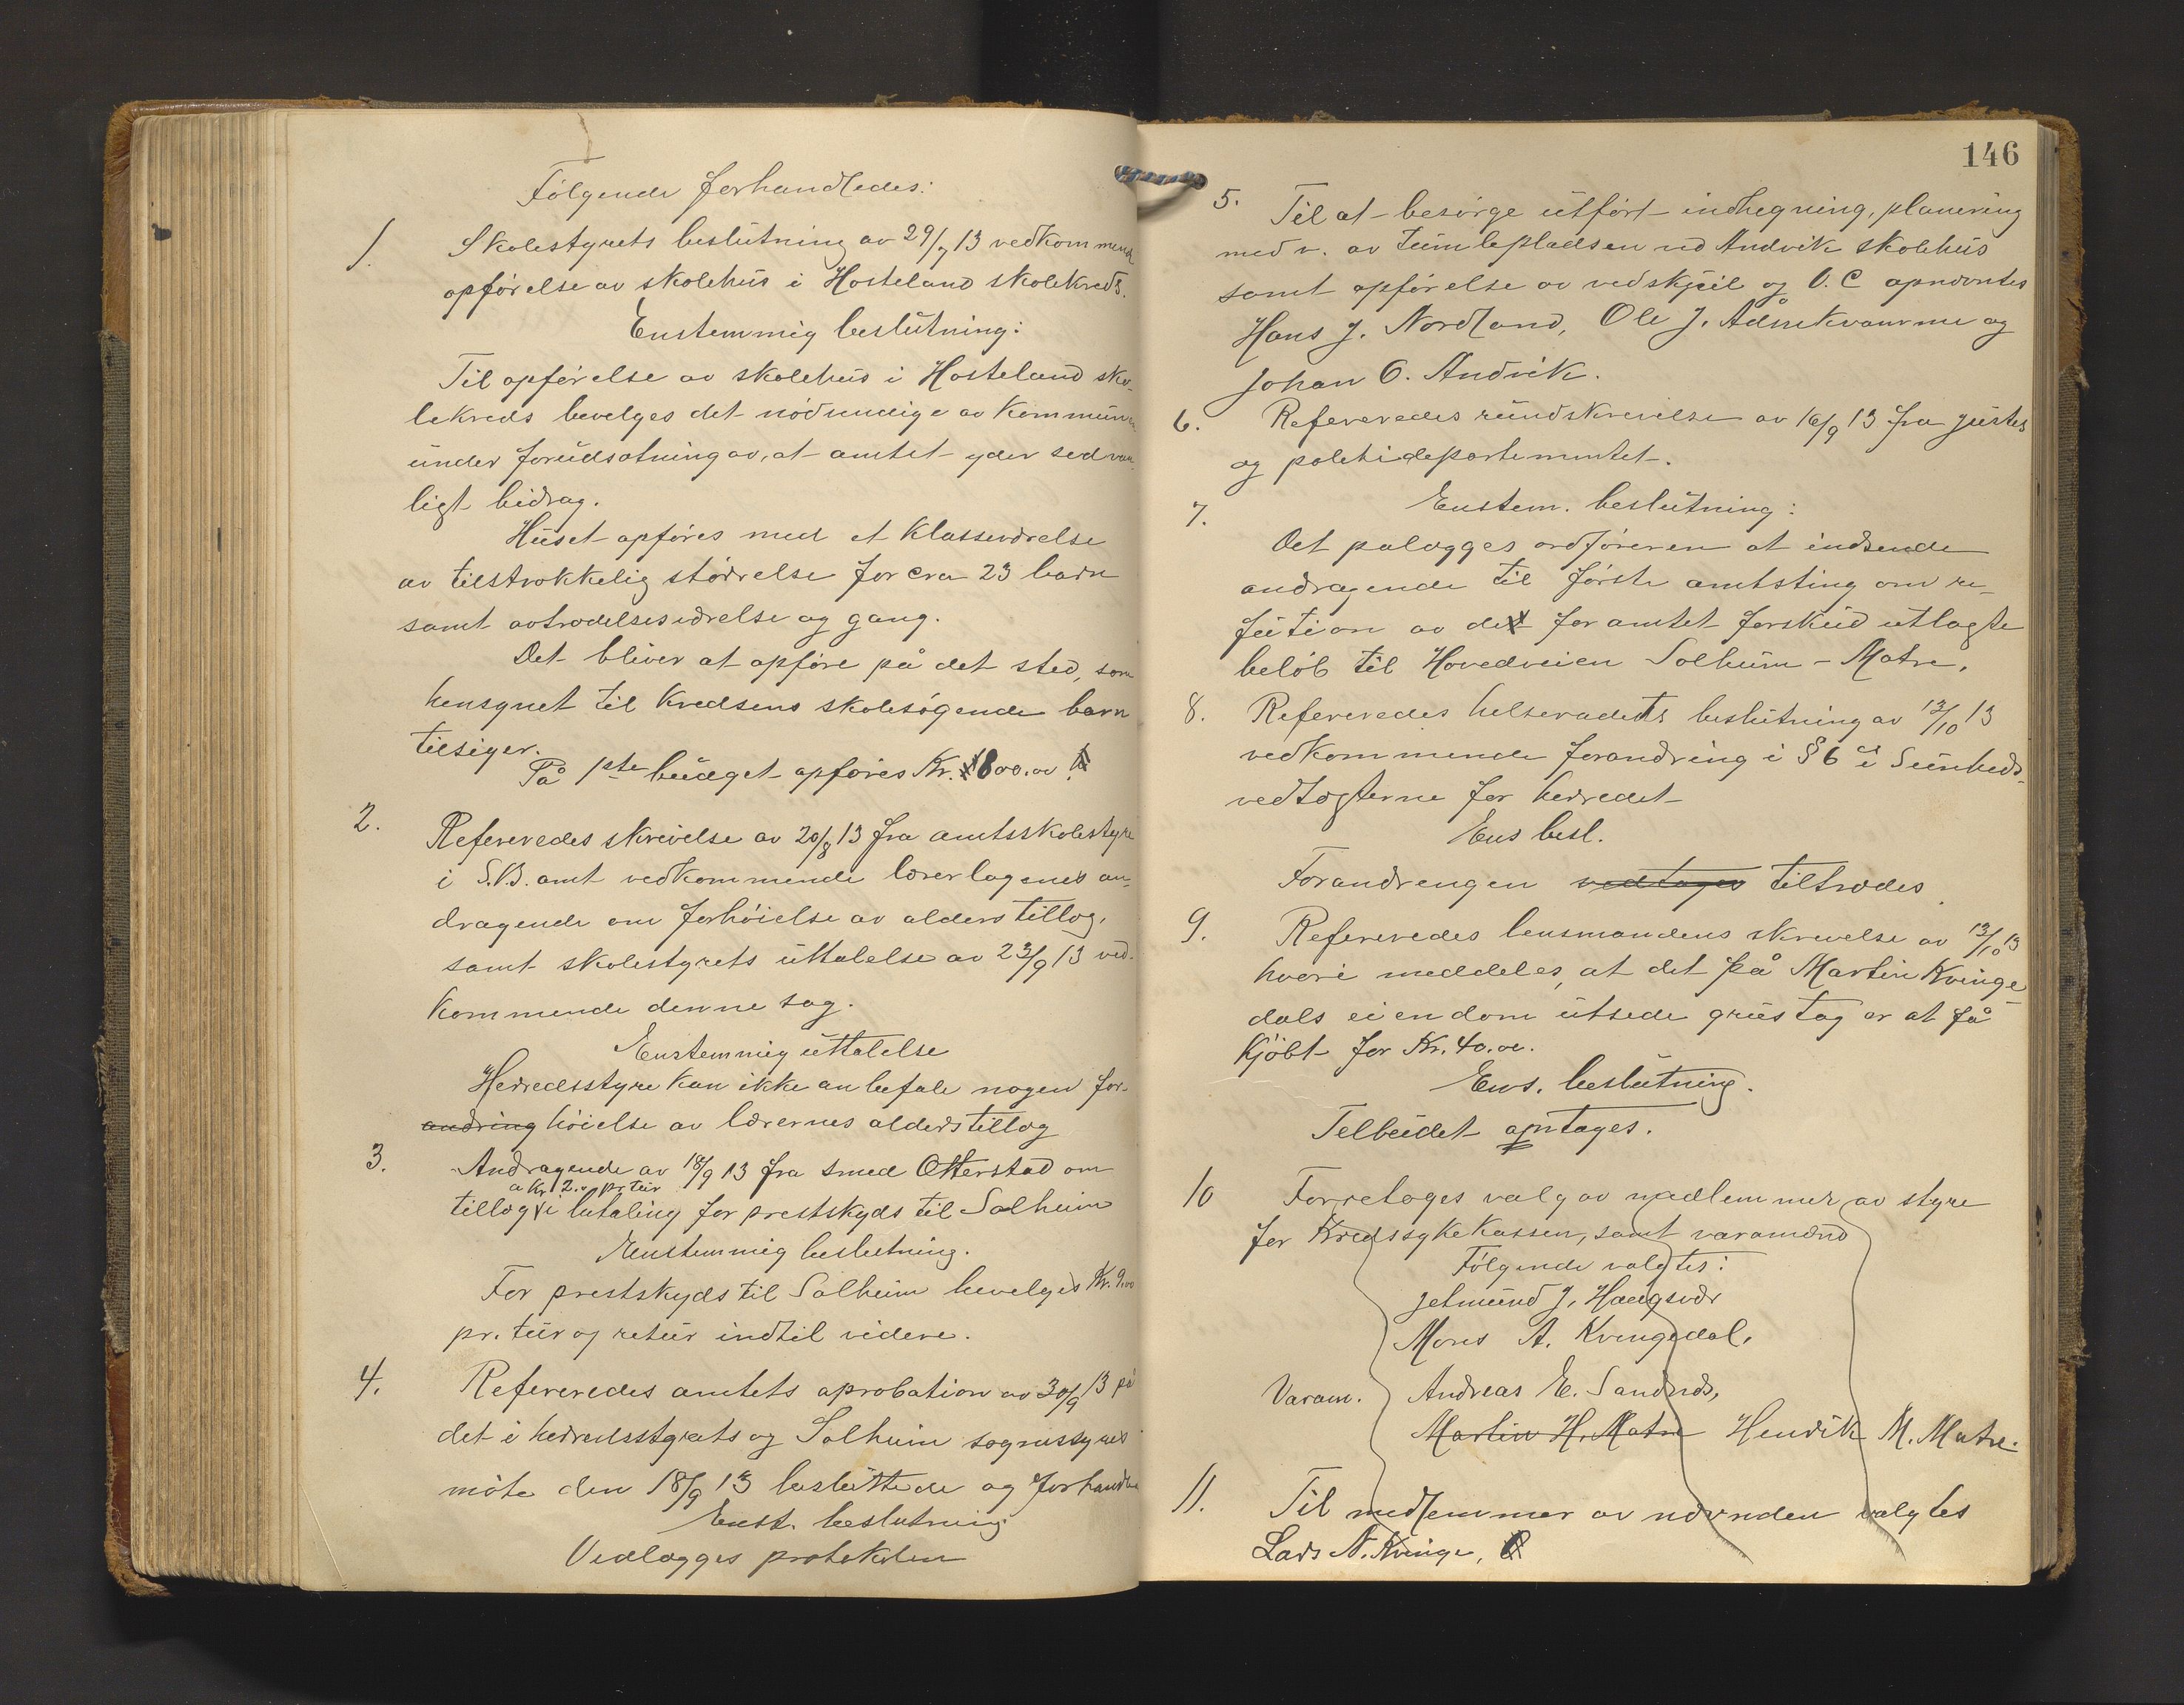 Følgende forhandledes:
1. Skolestyrets beslutning av 29/7 13 vedkommende
opførelse av skolehus i Hosteland skolekreds.
Enstemmig beslutning:
Til opførelse av skolehus i Hosteland sko-
lekreds bevelges det nødvendige av kommunen
under forudsætning av, at amtet yder sedvan-
ligt bidrag.
Huset opføres med et klasseværelse
av tilstrækkelig størrelse for cra 23 barn
samt avtrædelsesværelse og gang.
Det bliver at opføre på det sted, som
hensynet til kredsens skolesøgende barn
tilsiger.
På 1ste budget opføres Kr. 800.oo
2. Refereredes skrivelse av 20/8 13 fra amtsskolestyre
i S.B. amt vedkommende lærerlagenes an-
dragende om forhøielse av alderstillæg,
samt skolestyrets uttalelse av 23/9 13 ved-
kommende denne sag.
Enstemmig uttalelse
Herredsstyre kan ikke anbefale nogen for-
andring høielse av lærernes alderstillæg
3. Andragende av 18/9 13 fra smed Otterstad om
a kr 2.oo pr. tur
tillæg i betaling for prestskyds til Solheim
Enstemmig beslutning.
For prestskyds til Solheim bevelges Kr. 9.oo
pr. tur og retur indtil videre.
4. Refereredes amtets aprobation av 30/9 13 på
det i herredsstyrets og Solheim sognestyres
møte den 18/9 13 besluttede og forhandlede
Enst. beslutning
Vedlægges protokolen
146
5. Til at besørge utført indhegning, planering
med v. av tumlepladsen ved Andvik skolehus
samt opførelse av vedskjul og O.C opnævntes
Hans J. Nordland, Ole J. Ådnekvamme og
Johan O. Andvik.
6. Refereredes rundskrivelse av 16/9 13 fra justes
og politidepartementet.
7. Enstem. beslutning:
Det palægges ordføreren at indsende
andragende til første amtsting om re-
fution av det for amtet forskud utlagte
beløb til Hovedveien Solheim - Matre.
8. Refereredes helseradets beslutning av 13/10 13
vedkommende forandring i § 6 i Sunheds-
vedtægterne for herredet
Ens besl.
Forandrengen vedtages tiltrædes
9. Refereredes lensmandens skrivelse av 13/10 13
hvori meddeles, at det på Martin Kvinge-
dals eiendom utsede grustag er at få
kjøbt for Kr. 40.oo.
Ens. beslutning.
Telbudet antages.
10 Forretoges valg av medlemmer av styre
for Kredssykekassen, samt varamænd
Følgende valgtes:
Jetmund J. Haugsvær
Mons A. Kvingedal,
Varam. Andreas E. Sandnæs,
Martin H. Matre Henrik M. Matre.
11. Til medlemmer av nævnden valgtes
Lars N. Kvinge,